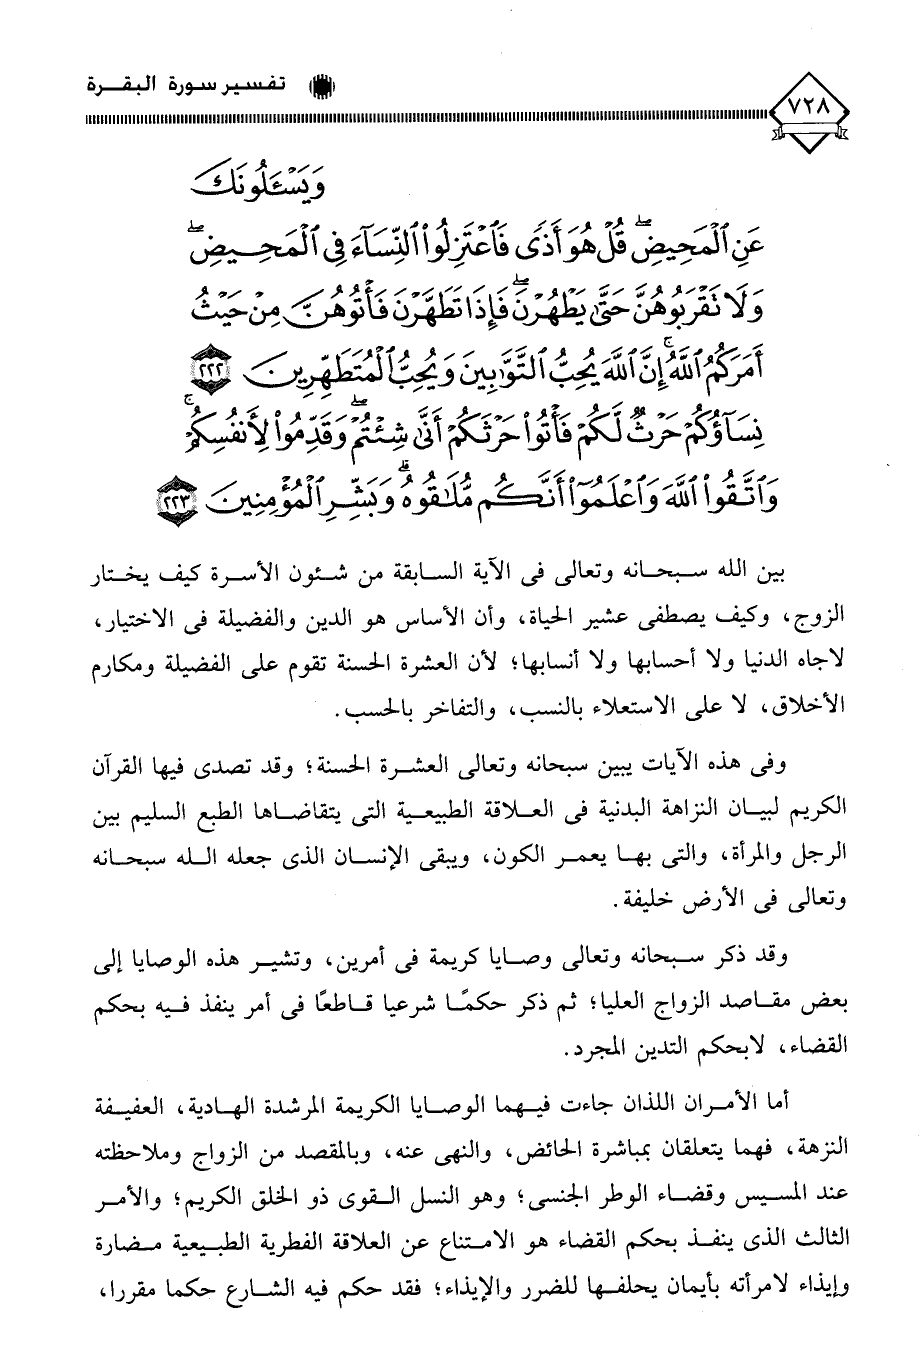 تفسير سورة البقرة
٧٢٨
وَيَسْـَٔلُونَكَ
عَنِ ٱلْمَحِيضِۖ قُلْ هُوَ أَذًى فَٱعْتَزِلُوا۟ ٱلنِّسَآءَ فِى ٱلْمَحِيضِۖ
وَلَا تَقْرَبُوهُنَّ حَتَّىٰ يَطْهُرْنَۖ فَإِذَا تَطَهَّرْنَ فَأْتُوهُنَّ مِنْ حَيْثُ
أَمَرَكُمُ ٱللَّهُۚ إِنَّ ٱللَّهَ يُحِبُّ ٱلتَّوَّٰبِينَ وَيُحِبُّ ٱلْمُتَطَهِّرِينَ ٢٢٢
نِسَآؤُكُمْ حَرْثٌ لَّكُمْ فَأْتُوا۟ حَرْثَكُمْ أَنَّىٰ شِئْتُمْۖ وَقَدِّمُوا۟ لِأَنفُسِكُمْۚ
وَٱتَّقُوا۟ ٱللَّهَ وَٱعْلَمُوٓا۟ أَنَّكُم مُّلَٰقُوهُۗ وَبَشِّرِ ٱلْمُؤْمِنِينَ ٢٢٣
بين الله سبحانه وتعالى فى الآية السابقة من شئون الأسرة كيف يختار
الزوج، وكيف يصطفى عشير الحياة، وأن الأساس هو الدين والفضيلة فى الاختيار،
لاجاه الدنيا ولا أحسابها ولا أنسابها؛ لأن العشرة الحسنة تقوم على الفضيلة ومكارم
الأخلاق، لا على الاستعلاء بالنسب، والتفاخر بالحسب.
وفى هذه الآيات يبين سبحانه وتعالى العشرة الحسنة؛ وقد تصدى فيها القرآن
الكريم لبيان النزاهة البدنية فى العلاقة الطبيعية التى يتقاضاها الطبع السليم بين
الرجل والمرأة، والتى بها يعمر الكون، ويبقى الإنسان الذى جعله الله سبحانه
وتعالى فى الأرض خليفة.
وقد ذكر سبحانه وتعالى وصايا كريمة فى أمرين، وتشير هذه الوصايا إلى
بعض مقاصد الزواج العليا؛ ثم ذكر حكمًا شرعيا قاطعًا فى أمر ينفذ فيه بحكم
القضاء، لابحكم التدين المجرد.
أما الأمران اللذان جاءت فيهما الوصايا الكريمة المرشدة الهادية، العفيفة
النزهة، فهما يتعلقان بمباشرة الحائض، والنهى عنه، وبالمقصد من الزواج وملاحظته
عند المسيس وقضاء الوطر الجنسى؛ وهو النسل القوى ذو الخلق الكريم؛ والأمر
الثالث الذى ينفذ بحكم القضاء هو الامتناع عن العلاقة الفطرية الطبيعية مضارة
وإيذاء لامرأته بأيمان يحلفها للضرر والإيذاء؛ فقد حكم فيه الشارع حكما مقررا،